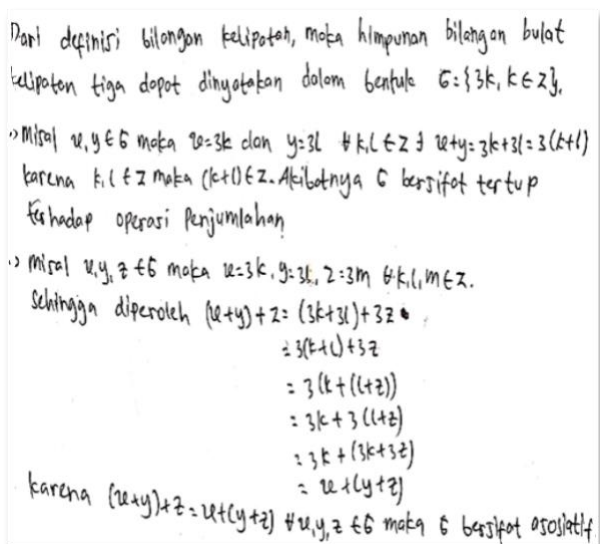 Dari definisi bilangan kelipatan, maka himpunan bilangan bulat
kelipatan tiga dapat dinyatakan dalam bentuk G={3k, k∈Z}.
•> Misal x,y∈G maka x=3k dan y=3l ∀k,l∈Z ∃ x+y=3k+3l=3(k+l)
karena k,l∈Z maka (k+l)∈Z. Akibatnya G bersifat tertup
terhadap operasi Penjumlahan
•> Misal x,y,z∈G maka x=3k, y=3l, z=3m ∀k,l,m∈Z.
Sehingga diperoleh (x+y)+z = (3k+3l)+3z
= 3(k+l)+3z
= 3(k+(l+z))
= 3k+3(l+z)
= 3k+(3k+3z)
= x+(y+z)
karena (x+y)+z=x+(y+z) ∀x,y,z∈G maka G bersifat asosiatif.